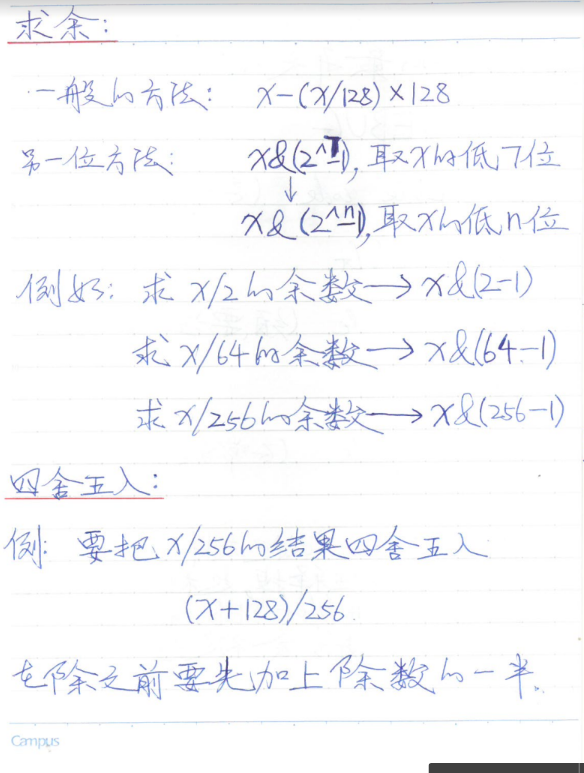 求余:
一般的方法: x-(x/128)×128
另一位方法: x&(2^7-1),取x的低7位
↓
x&(2^n-1),取x的低n位
例如: 求 x/2的余数→x&(2-1)
求 x/64的余数→x&(64-1)
求 x/256的余数→x&(256-1)
四舍五入:
例: 要把 x/256的结果四舍五入
(x+128)/256
在除之前要先加上除数的一半.
Campus